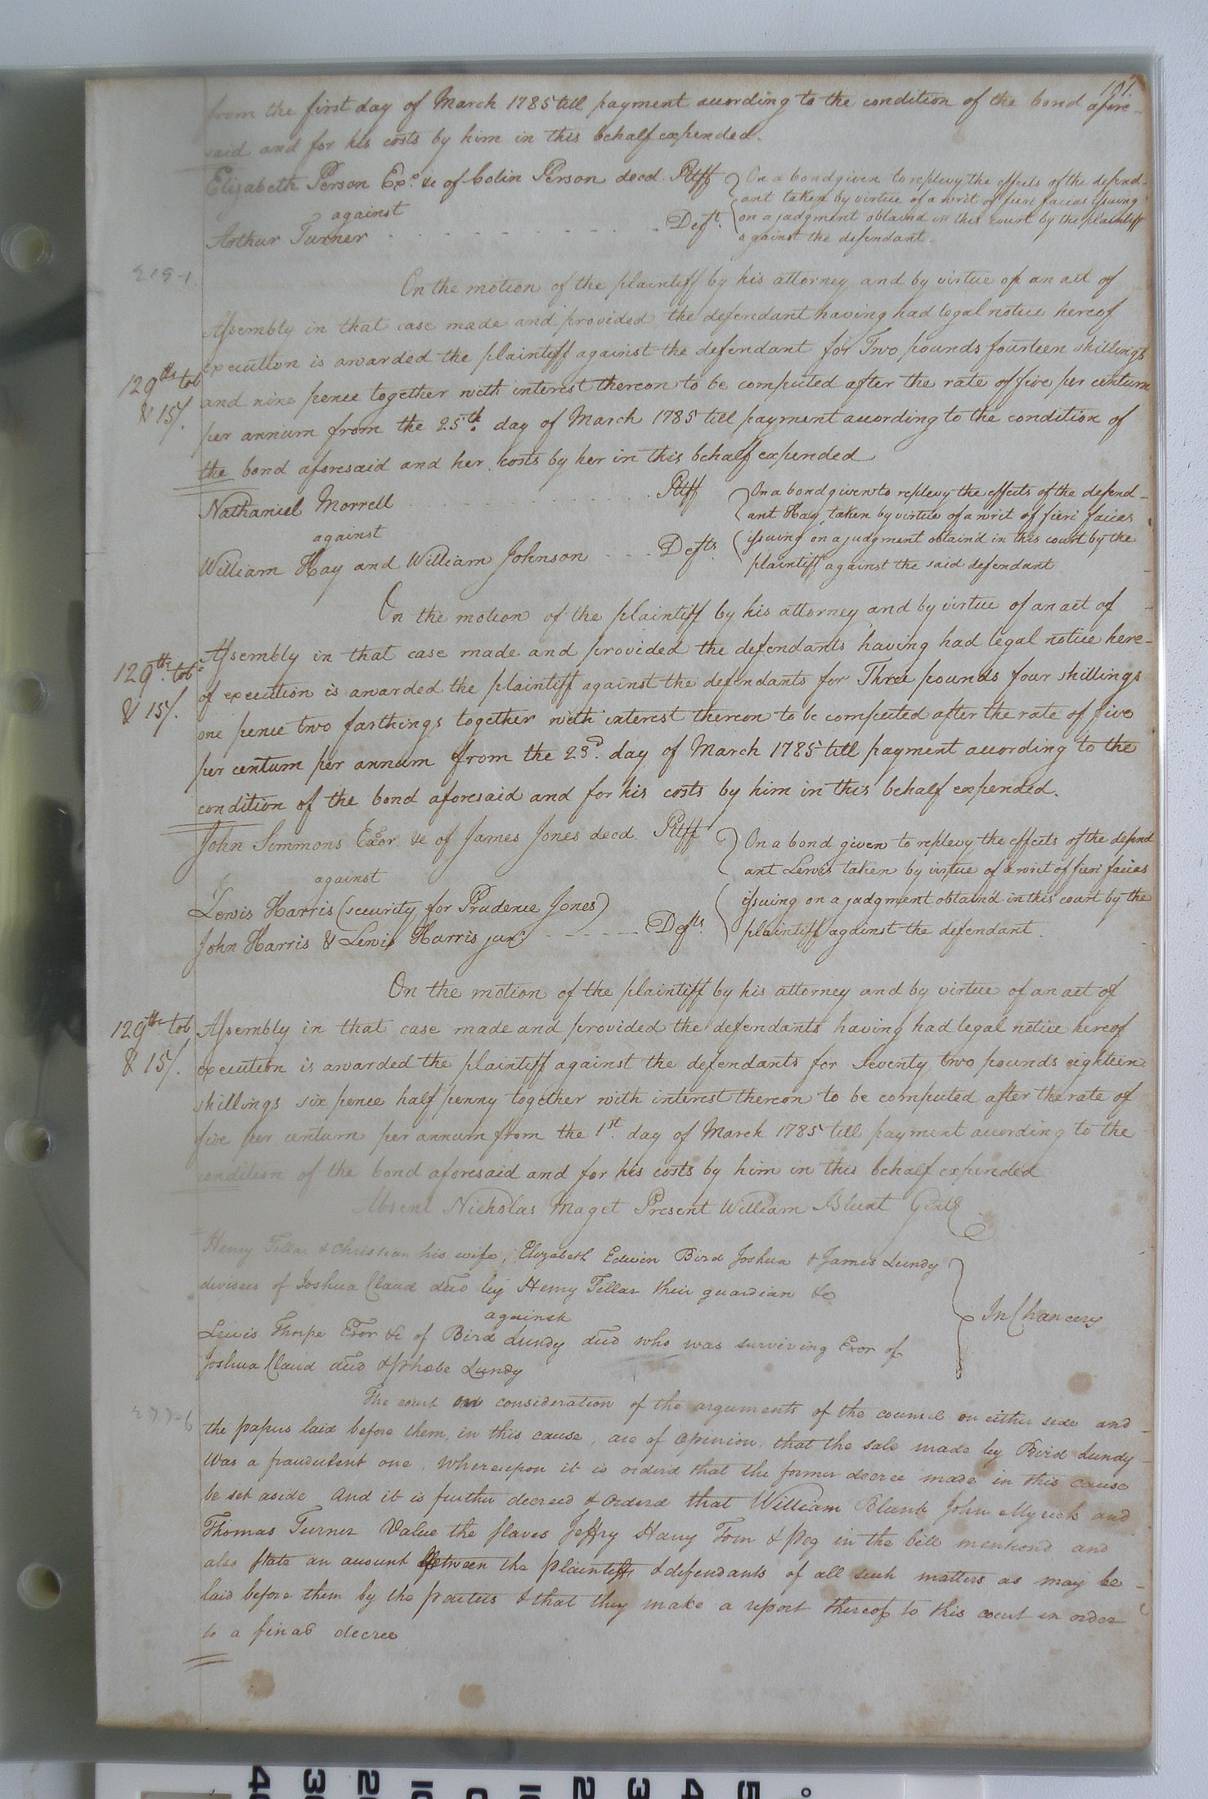 107
from the first day of March 1785 till payment according to the condition of the bond afore-
said and for his costs by him in this behalf expended.
Elizabeth Person Exo. &c of Colin Person decd. Pltff
against
Arthur Turner - - - - - - - - - Deft.
On a bond given to replevy the effects of the defend-
ant taken by virtue of a writ of fieri facias issuing
on a judgment obtaind in this court by the plaintiff
against the defendant.
On the motion of the plaintiff by his attorney and by virtue of an act of
Assembly in that case made and provided the defendant having had legal notice hereof
execution is awarded the plaintiff against the defendant for Two pounds fourteen shillings
129th tob
& 15/.
and nine pence together with interest thereon to be computed after the rate of five per centum
per annum from the 25th. day of March 1785 till payment according to the condition of
the bond aforesaid and her costs by her in this behalf expended
Nathaniel Morrell - - - - - - - Pltff
against
William Hay and William Johnson - - - Defts.
On a bond given to replevy the effects of the defend-
ant Hay, taken by virtue of a writ of fieri facias
issuing on a judgment obtaind in this court by the
plaintiff against the said defendant
On the motion of the plaintiff by his attorney and by virtue of an act of
Assembly in that case made and provided the defendants having had legal notice here-
129th. tobo
& 15/.
of execution is awarded the plaintiff against the defendants for Three pounds four shillings
one pence two farthings together with interest thereon to be computed after the rate of five
per centum per annum from the 23d. day of March 1785 till payment according to the
condition of the bond aforesaid and for his costs by him in this behalf expended.
John Simmons Exor &c of James Jones decd. Pltff
against
Lewis Harris (security for Prudence Jones)
John Harris & Lewis Harris jun: - - - - - Defts.
On a bond given to replevy the effects of the defend
ant Lewis taken by virtue of a writ of fieri facias
issuing on a judgment obtaind in this court by the
plaintiff against the defendant.
On the motion of the plaintiff by his attorney and by virtue of an act of
129th tob
& 15/.
Assembly in that case made and provided the defendants having had legal notice hereof
execution is awarded the plaintiff against the defendants for Seventy two pounds eighteen
shillings six pence half penny together with interest thereon to be computed after the rate of
five per centum per annum from the 1st. day of March 1785 till payment according to the
condition of the bond aforesaid and for his costs by him in this behalf expended
Absent Nicholas Maget Present William Blunt Gent
Henry Tellar & Christian his wife, Elizabeth Edwin Bird Joshua & James Lundy
devisees of Joshua Claud decd by Henry Tellar their guardian &c
against
Lewis Thorpe Exor &c of Bird Lundy decd who was surviving Exor of
Joshua Claud decd & Phebe Lundy
In Chancery
The court on consideration of the arguments of the council on either side and
the papers laid before them in this cause, are of opinion, that the sale made by Bird Lundy
was a fraudulent one, whereupon it is orderd that the former decree made in this cause
be set aside And it is further decreed & orderd that William Blunt John Myrick and
Thomas Turner Value the slaves Jeffry Harry Tom & Peg in the bill mentiond and
also state an account between the plaintiffs & defendants of all such matters as may be
laid before them by the parties & that they make a report thereof to this court in order
to a final decree
40 30 20 10 0 10 20 30 40 50